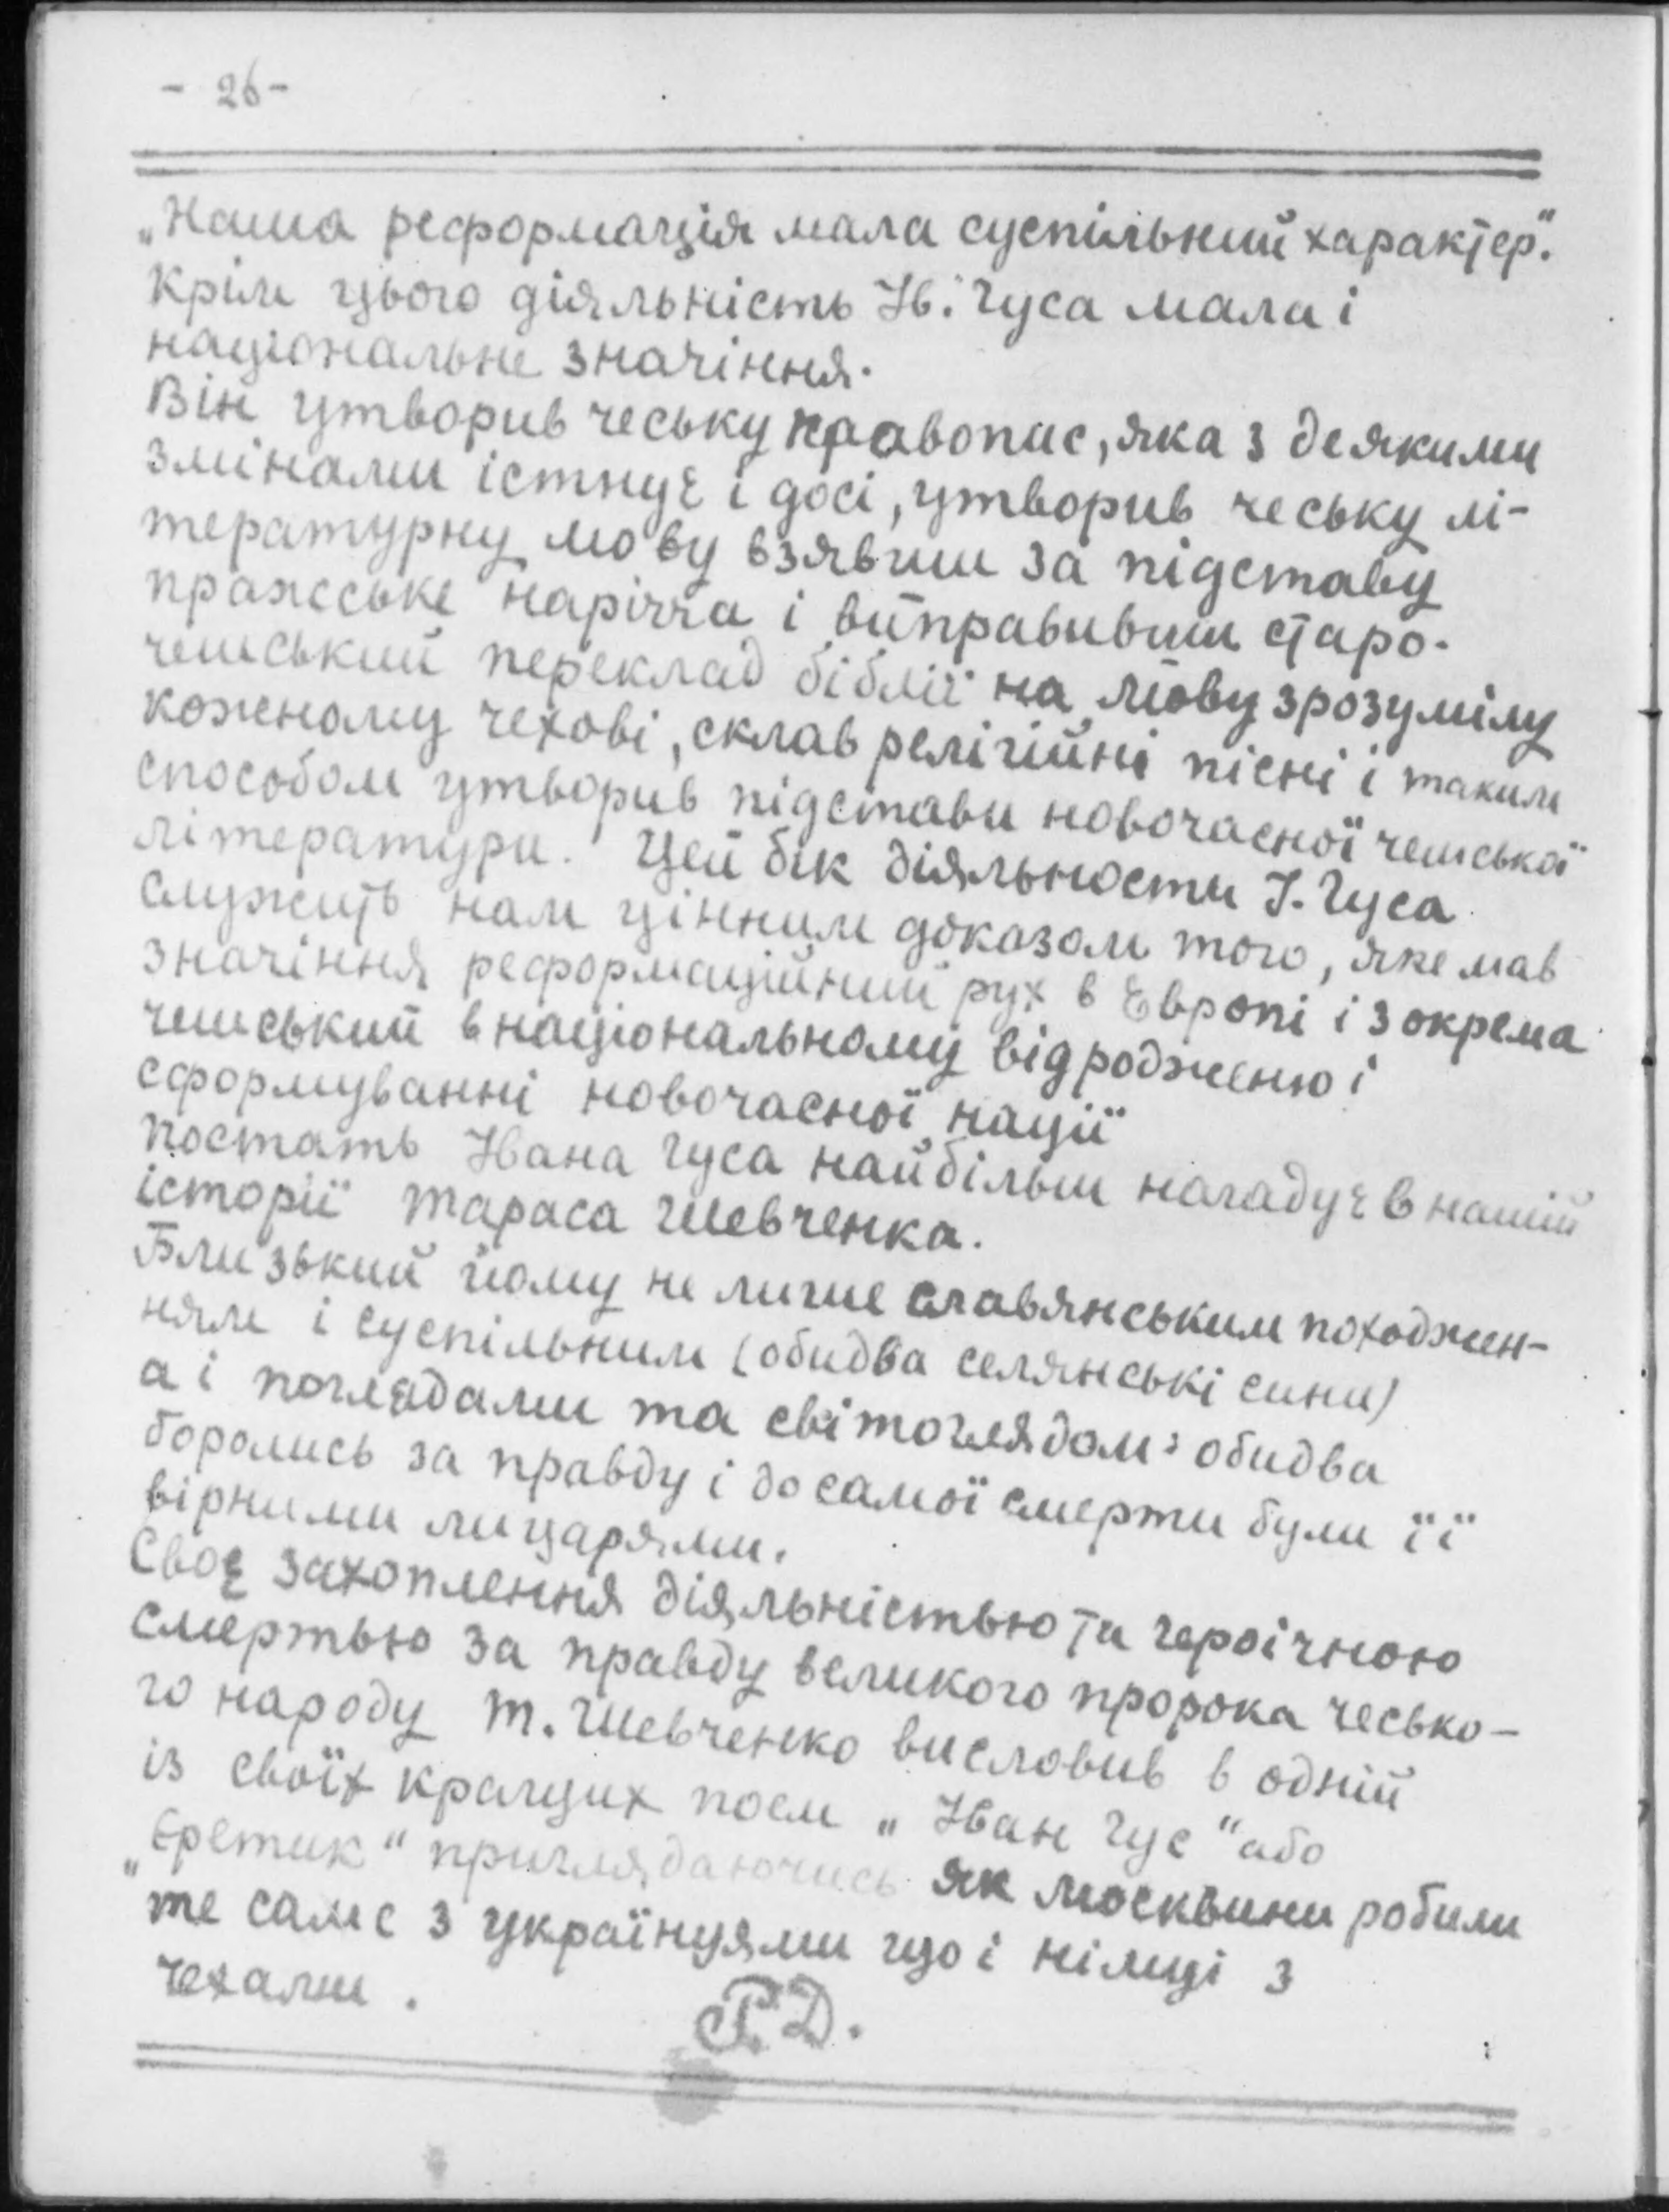 - 26 -
„Наша реформація мала суспільний характер."
Крім цього діяльність Ів. Гуса мала і
національне значіння.
Він утворив чеську правопис, яка з деякими
змінами істнує і досі, утворив чеську лі-
тературну мову взявши за підставу
пражське нарічча і виправивши старо-
чешський переклад біблії на мову зрозумілу
кожному чехові, склав релігійні пісні і таким
способом утворив підстави новочасної чешської
літератури. Цей бік діяльности І. Гуса
служить нам цінним доказом того, яке мав
значіння реформаційний рух в Европі і зокрема
чешський в національному відродженю і
сформуванні новочасної нації
Постать Івана Гуса найбільш нагадує в нашій
історії Тараса Шевченка.
Близький йому не лише славянським походжен-
ням і суспільним (обидва селянські сини)
а і поглядами та світоглядом: обидва
боролись за правду і до самої смерти були її
вірними лицарями.
Своє захоплення діяльністью та героічною
смертью за правду великого пророка чесько-
го народу Т. Шевченко висловив в одній
із своїх кращих поем „Іван Гус" або
„Єретик" приглядаючись як москвини робили
те саме з українцями що і німці з
чехами.
Р. Д.